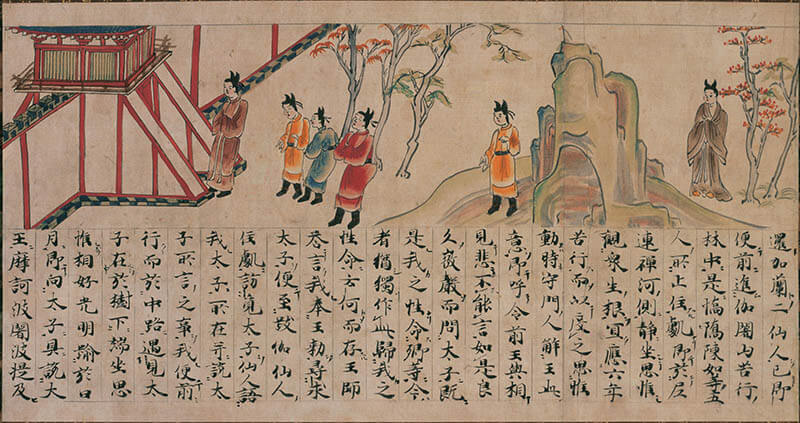 還加蘭二仙人已即
便前進伽闍山苦行
林中是憍陳如等五
人所止住處即於尼
連禪河側靜坐思惟
觀衆生根宜應六年
苦行而以度之思惟
動時守門人解王此
意即呼令前王與相
見悲不能言如是良
久微聲而問太子既
是我之性命卿等今
者猶獨作此歸我之
性命云何而存王師
答言我奉王勅尋求
太子便至跋伽仙人
住處訪覓太子仙人語
我太子所在并説太
子所言之事我便前
行而於中路遇覓太
子在於樹下端坐思
惟相好光明踰於日
月即向太子具説大
王摩訶波闍波提及